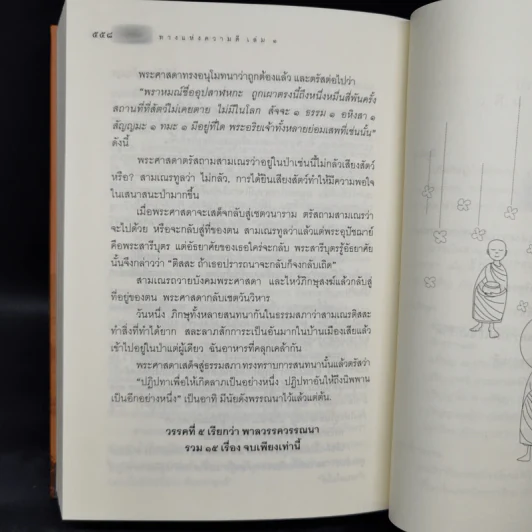 ๕๕๘
ทางแห่งความดี เล่ม ๑
พระศาสดาทรงอนุโมทนาว่าถูกต้องแล้ว และตรัสต่อไปว่า
"พราหมณ์ชื่ออุปสาฬหกะ ถูกเผาตรงนี้ถึงหนึ่งหมื่นสี่พันครั้ง
สถานที่ที่สัตว์ไม่เคยตาย ไม่มีในโลก สัจจะ ๑ ธรรม ๑ อหิงสา ๑
สัญญมะ ๑ ทมะ ๑ มีอยู่ที่ใด พระอริยเจ้าทั้งหลายย่อมเสพที่เช่นนั้น"
ดังนี้
พระศาสดาตรัสถามสามเณรว่าอยู่ในป่าเช่นนี้ไม่กลัวเสียงสัตว์
หรือ? สามเณรทูลว่า ไม่กลัว, การได้ยินเสียงสัตว์ทำให้มีความพอใจ
ในเสนาสนะป่ามากขึ้น
เมื่อพระศาสดาจะเสด็จกลับสู่เชตวนาราม ตรัสถามสามเณรว่า
จะไปด้วย หรือจะกลับสู่ที่ของตน สามเณรทูลว่าแล้วแต่พระอุปัชฌาย์
คือพระสารีบุตร แต่อัธยาศัยของเธอใคร่จะกลับ พระสารีบุตรรู้อัธยาศัย
นั้นจึงกล่าวว่า "ติสสะ ถ้าเธอปรารถนาจะกลับก็จงกลับเถิด"
สามเณรถวายบังคมพระศาสดา และไหว้ภิกษุสงฆ์แล้วกลับสู่
ที่อยู่ของตน พระศาสดากลับเชตวันวิหาร
วันหนึ่ง ภิกษุทั้งหลายสนทนากันในธรรมสภาว่าสามเณรติสสะ
ทำสิ่งที่ทำได้ยาก สละลาภสักการะเป็นอันมากในบ้านเมืองเสียแล้ว
เข้าไปอยู่ในป่าแต่ผู้เดียว ฉันอาหารที่คลุกเคล้ากัน
พระศาสดาเสด็จสู่ธรรมสภา ทรงทราบการสนทนานั้นแล้วตรัสว่า
"ปฏิปทาเพื่อให้เกิดลาภเป็นอย่างหนึ่ง ปฏิปทาอันให้ถึงนิพพาน
เป็นอีกอย่างหนึ่ง" เป็นอาทิ มีนัยดังพรรณนาไว้แล้วแต่ต้น.
วรรคที่ ๕ เรียกว่า พาลวรรควรรณนา
รวม ๑๕ เรื่อง จบเพียงเท่านี้